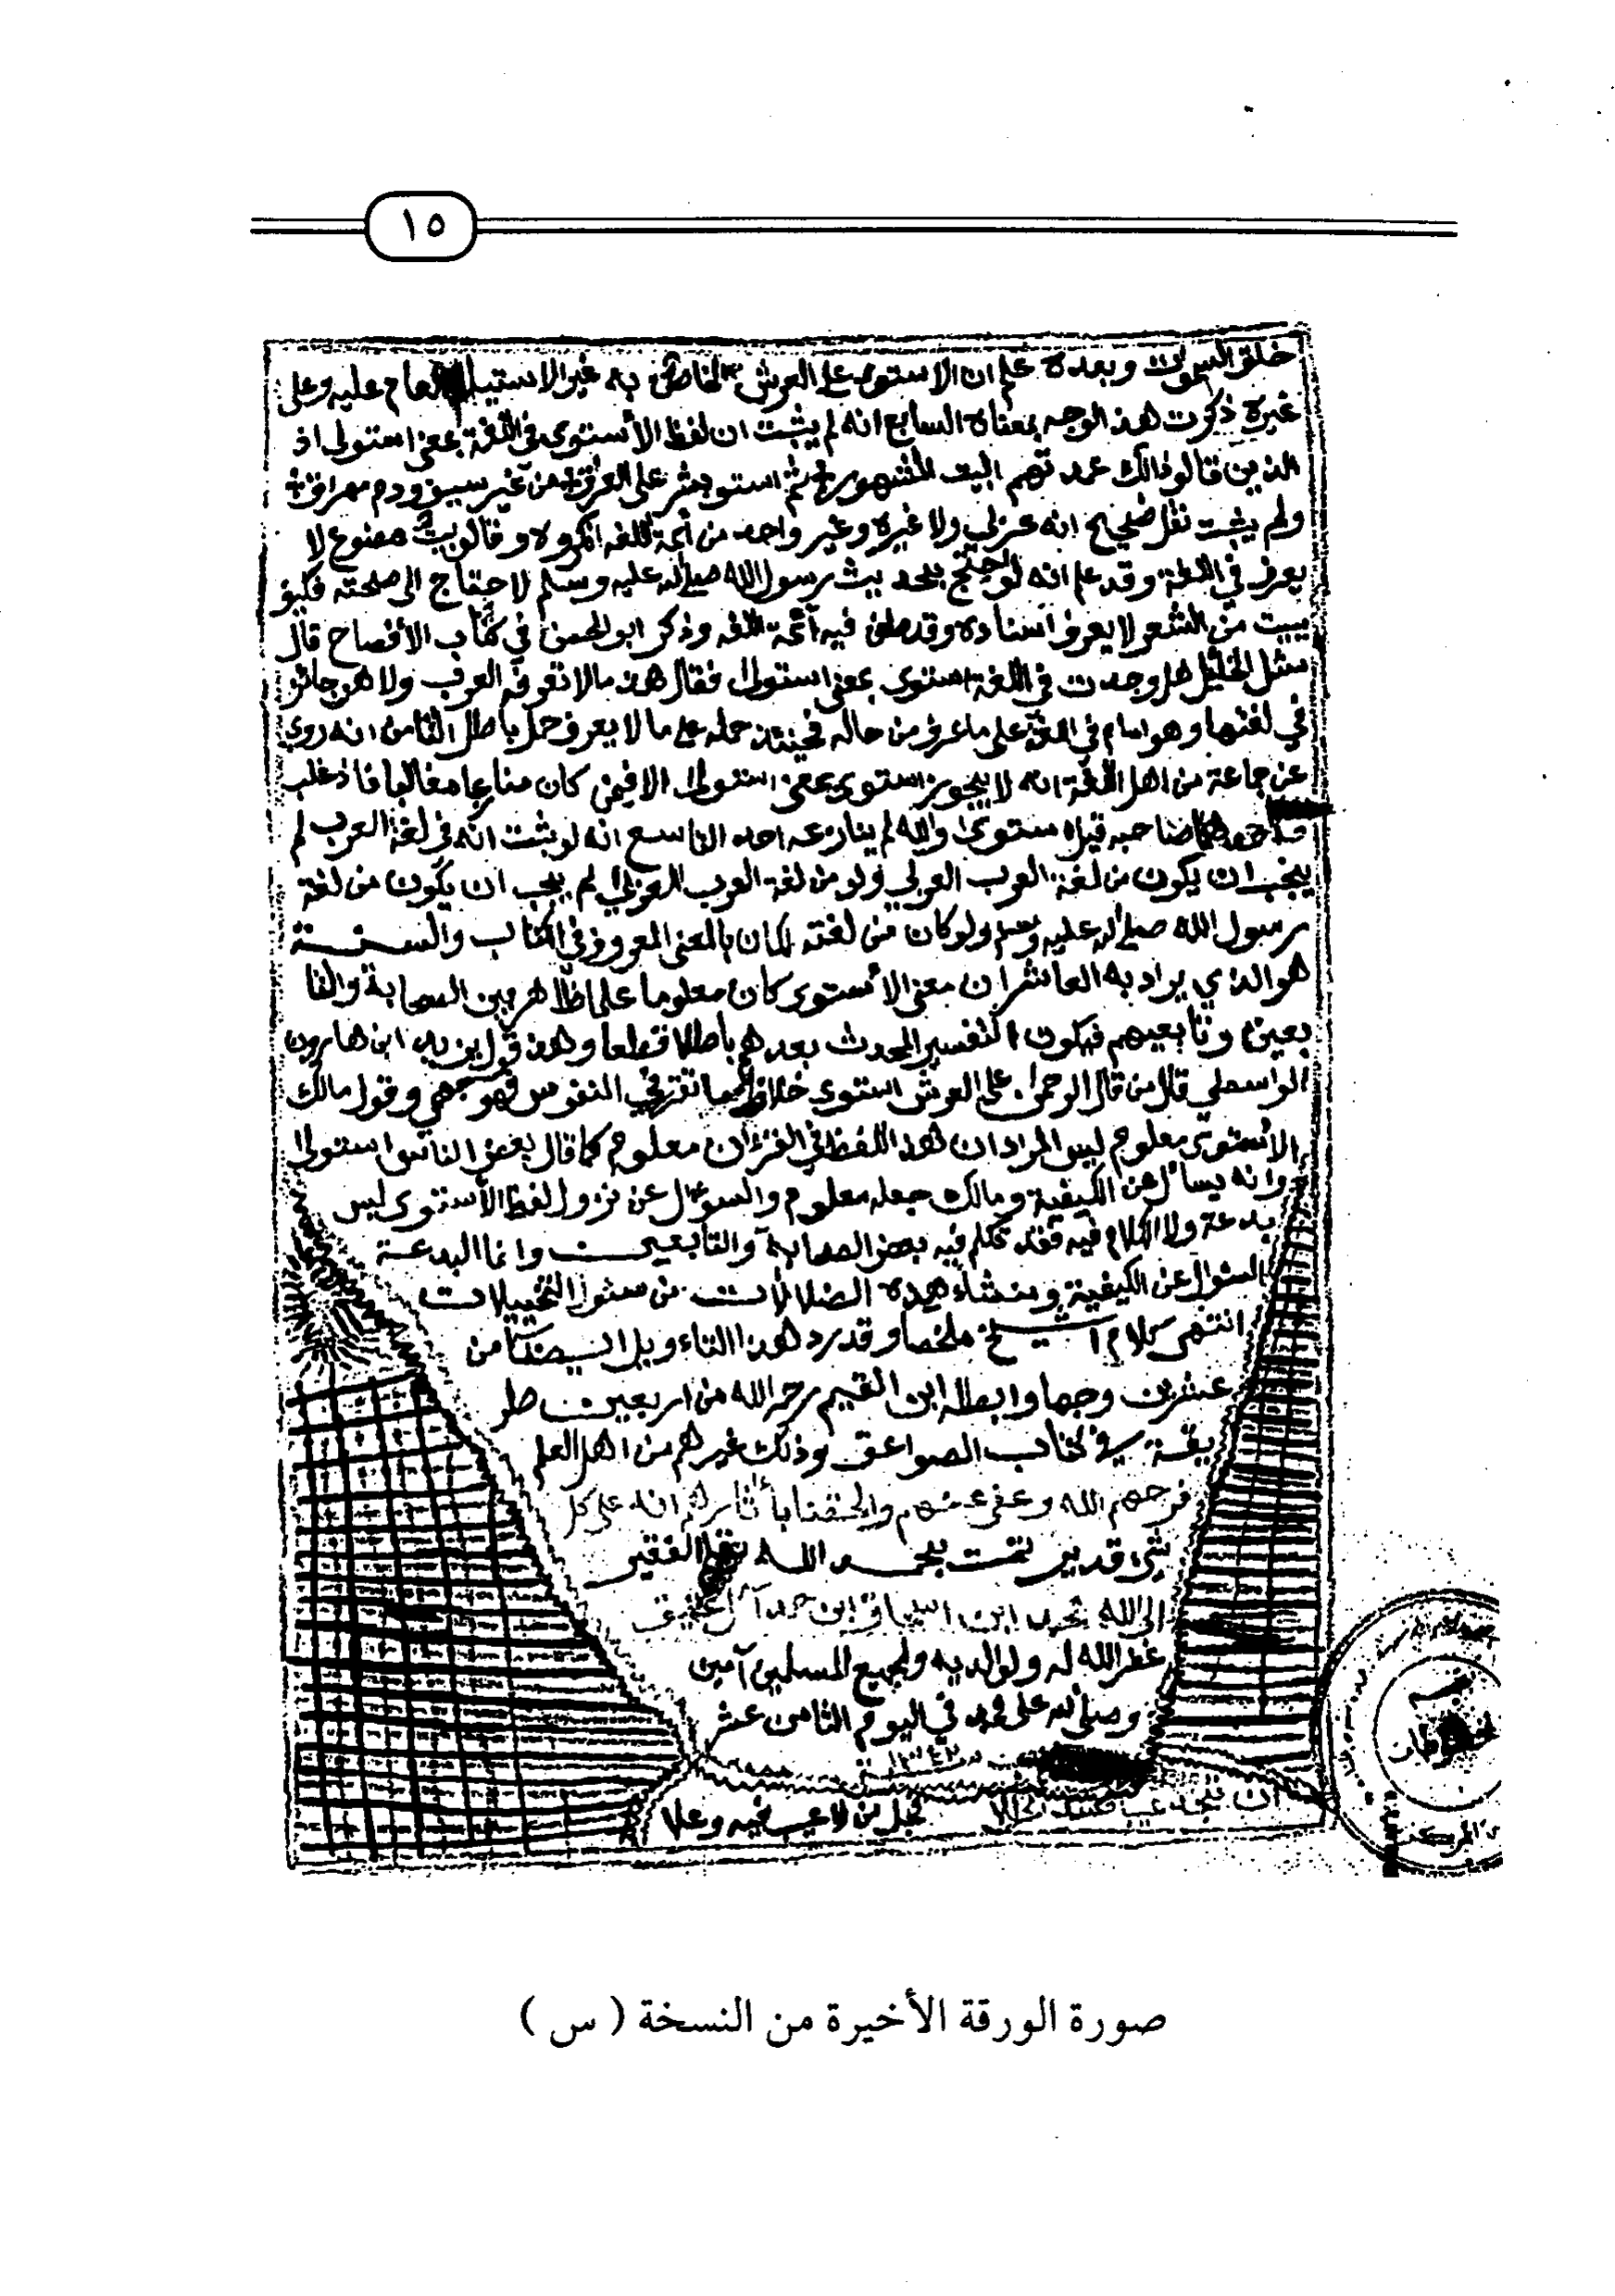 ١٥
خلق السموات وبعده علم ان الاستوى على العرش الخاص به غير الاستيلا العام عليه وعلى
غيره ذكرت هذ الوجه بمعناه السابع انه لم يثبت ان لفظ الأستوى في اللغة بمعنى استولى اذ
الذين قالو ذالك عمد تهم البيت المشهور ثم استوى بشر على العراق من غير سيف ودم مهراق
ولم يثبت نقل صحيح انه عربي ولا غيره وغير واحد من أئمة اللغه انكروه وقالو بيت مصنوع لا
يعرف في اللغة وقد علم انه لو احتج بحديث رسول الله صلى الله عليه وسلم لاحتاج الى صحته فكيف
ببيت من الشعر لا يعرف اسناده وقد طعن فيه أئمة اللغه وذكر ابو الحسن في كتاب الأفصاح قال
سئل الخليل هل وجدت في اللغة استوى بمعنى استولى فقال هذ مالا تعرفه العرب ولا هو جائز
في لغتها وهو امام في اللغة على ما عرف من حاله فحينئذ حمله على ما لا يعرف حمل باطل الثامن انه روي
عن جماعة من اهل اللغة انه لا يجوز استوى بمعنى استولى الا فيمن كان منازعا مغالبا فاذ غلب
احدهما صاحبه قيل استوى والله لم ينازعه احد التاسع انه لو ثبت انه في لغة العرب لم
يجب ان يكون من لغة العرب العربي ولو من لغة العرب العربي لم يجب ان يكون من لغة
رسول الله صلى الله عليه وسلم ولو كان من لغته لكان بالمعنى المعروف في الكتاب والسنة
هو الذي يراد به العاشر ان معنى الأستوى كان معلوما علما ظاهر بين الصحابة والتا
بعين وتابعيهم فيكون التفسير المحدث بعدهم باطلا قطعا وهذ قول يزيد ابن هارون
الواسطي قال من قال الرحمن على العرش استوى خلاف ما تقرر في النفوس فهو جهمي وقول مالك
الأستوى معلوم ليس المراد ان هذ اللفظ في القرءان معلوم كما قال بعض الناس استولى
وانه يسأل عن الكيفية ومالك جعله معلوم والسوءال عن نزول لفظ الأستوى ليس
بدعة ولا الكلام فيه فقد تكلم فيه بعض الصحابة والتابعين وانما البدعة
السئوال عن الكيفية ومنشاء هذه الضلالات من سئوال التخييلات
انتهى كلام الشيخ ملخصا وقد رد هذا التاءويل ايضا من
عشرين وجها وابطله ابن القيم رحمه الله من اربعين طر
يقة في كتاب الصواعق وذلك غيرهم من اهل العلم
فرحمهم الله وعفى عنهم والحقنا بأثارهم انه على كل
شيء قدير تمت بحمد الله بقلم الفقير
الى الله محمد ابن اسحاق ابن حمد آل عتيق
غفر الله له ولوالديه ولجميع المسلمين آمين
وصلى الله على محمد في اليوم الثامن عشر
ان تجد عيبا فسد الخللا
فجل من لا عيب فيه وعلا
صورة الورقة الأخيرة من النسخة ( س )